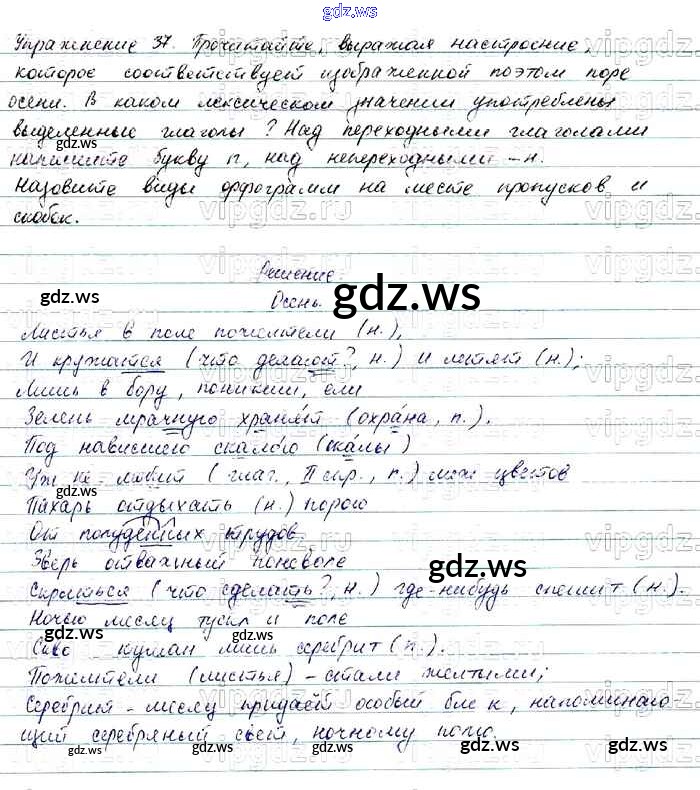 gdz.ws
Упражнение 37. Прочитайте, выражая настроение,
которое соответствует изображенной поэтом поре
осени. В каком лексическом значении употреблены
выделенные глаголы? Над переходными глаголами
напишите букву п, над непереходными – н.
Назовите виды орфограмм на месте пропусков и
скобок.
Решение:
Осень.
gdz.ws
gdz.ws
Листья в поле пожелтели (н.),
И кружатся (что делают?, н.) и летят (н.);
Лишь в бору, поникши, ели
Зелень мрачную хранят (охрана, п.).
Под нависшею скалою (скалы)
Уж не любит (глаг., II спр., п.) меж цветов
Пахарь отдыхать (н.) порою
От полуденных трудов.
Зверь отважный поневоле
gdz.ws
Скрыться (что сделать?, н.) где-нибудь спешит (н.).
Ночью месяц тускл и поле
gdz.ws
Сквозь туман лишь серебрит (п.).
Пожелтели (листья) – стали желтыми;
Серебрит – месяц придаёт особый блеск, напоминаю
щий серебряный свет, ночному полю.
gdz.ws
gdz.ws